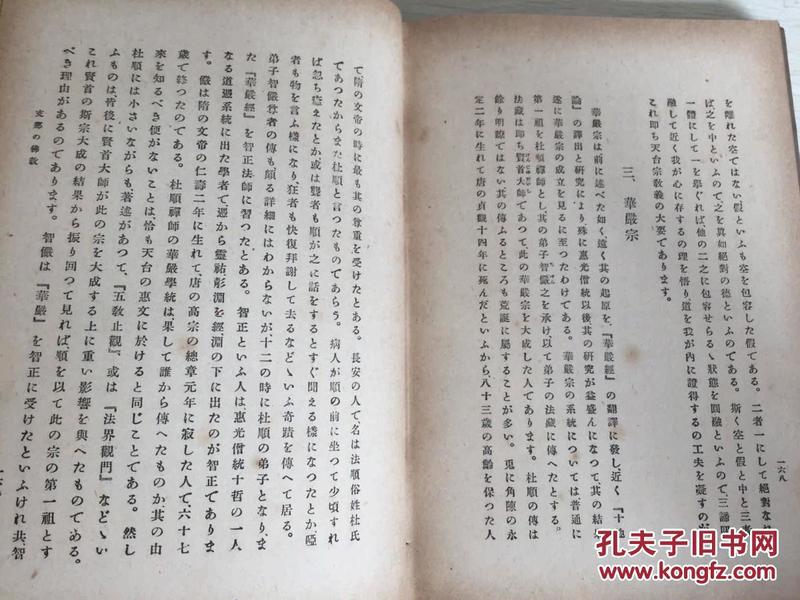 を離れた空ではない假といふも空を包容した假である。二者一にして絕對な
ば之を中といふので之を眞如絕對の德といふのである。斯く空と假と中と三者
一體にして一を擧ぐれば他の二之に包容せらるゝ狀態を圓融といふので、三諦圓
融して近く我が心に存するの理を悟り、道を我が內に證得するの工夫を凝すのが
これ卽ち天台宗敎義の大要であります。
三、華嚴宗
華嚴宗は前に述べた如く遠く其の起原を、『華嚴經』の翻譯に發し、近く『十地
論』の譯出と研究により殊に惠光僧統以後其の硏究が益盛んになつて其の結果
遂に華嚴宗の成立を見るに至つたわけである。華嚴宗の系統については普通に
第一祖を杜順禪師とし其の弟子智儼之を承け以て弟子の法藏に傳へたとする。
法藏は卽ち賢首大師であつて此の華嚴宗を大成した人であります。杜順の傳は
餘り明瞭ではない其の傳ふるところも荒誕に屬することが多い。兎に角陳の永
定二年に生れて唐の貞觀十四年に死んだといふから八十三歲の高齡を保つた人
一六八
て隋の文帝の時に最も其の尊重を受けたとある。長安の人で、名は法順俗姓杜氏
であつたからまた杜順と言つたものであらう。病人が順の前に坐つて少頃すれ
ば忽ち癒えたとか或は聾者も順が之に話をするとすぐ聞える樣になつたとか啞
者も物を言ふ樣になり、狂者も快復拜謝して去るなどゝいふ奇蹟を傳へて居る。
弟子智儼尊者の傳も頗る詳細にはわからないが、十二の時に杜順の弟子となり、ま
た『華嚴經』を智正法師に習つたとある。智正といふ人は惠光僧統十哲の一人
なる道憑系統に出た學者で、憑から靈祐彭淵を經、淵の下に出たのが智正でありま
す。儼は隋の文帝の仁壽二年に生れて、唐の高宗の總章元年に寂した人で、六十七
歲で終つたのである。杜順禪師の華嚴學統は果して誰から傳へたものか其の由
來を知るべき便がないことは、恰も天台の惠文に於けると同じことである。然し
杜順には小さいながらも著述があつて、『五敎止觀』、或は『法界觀門』などゝい
ふものは、皆後に賢首大師が此の宗を大成する上に重い影響を與へたものである。
これ賢首の斯宗大成の結果から振り回つて見れば順を以て此の宗の第一祖とす
べき理由があるのであります。智儼は『華嚴』を智正に受けたといふけれ共、智
支那の佛敎
孔夫子旧书网
KONGFZ.COM